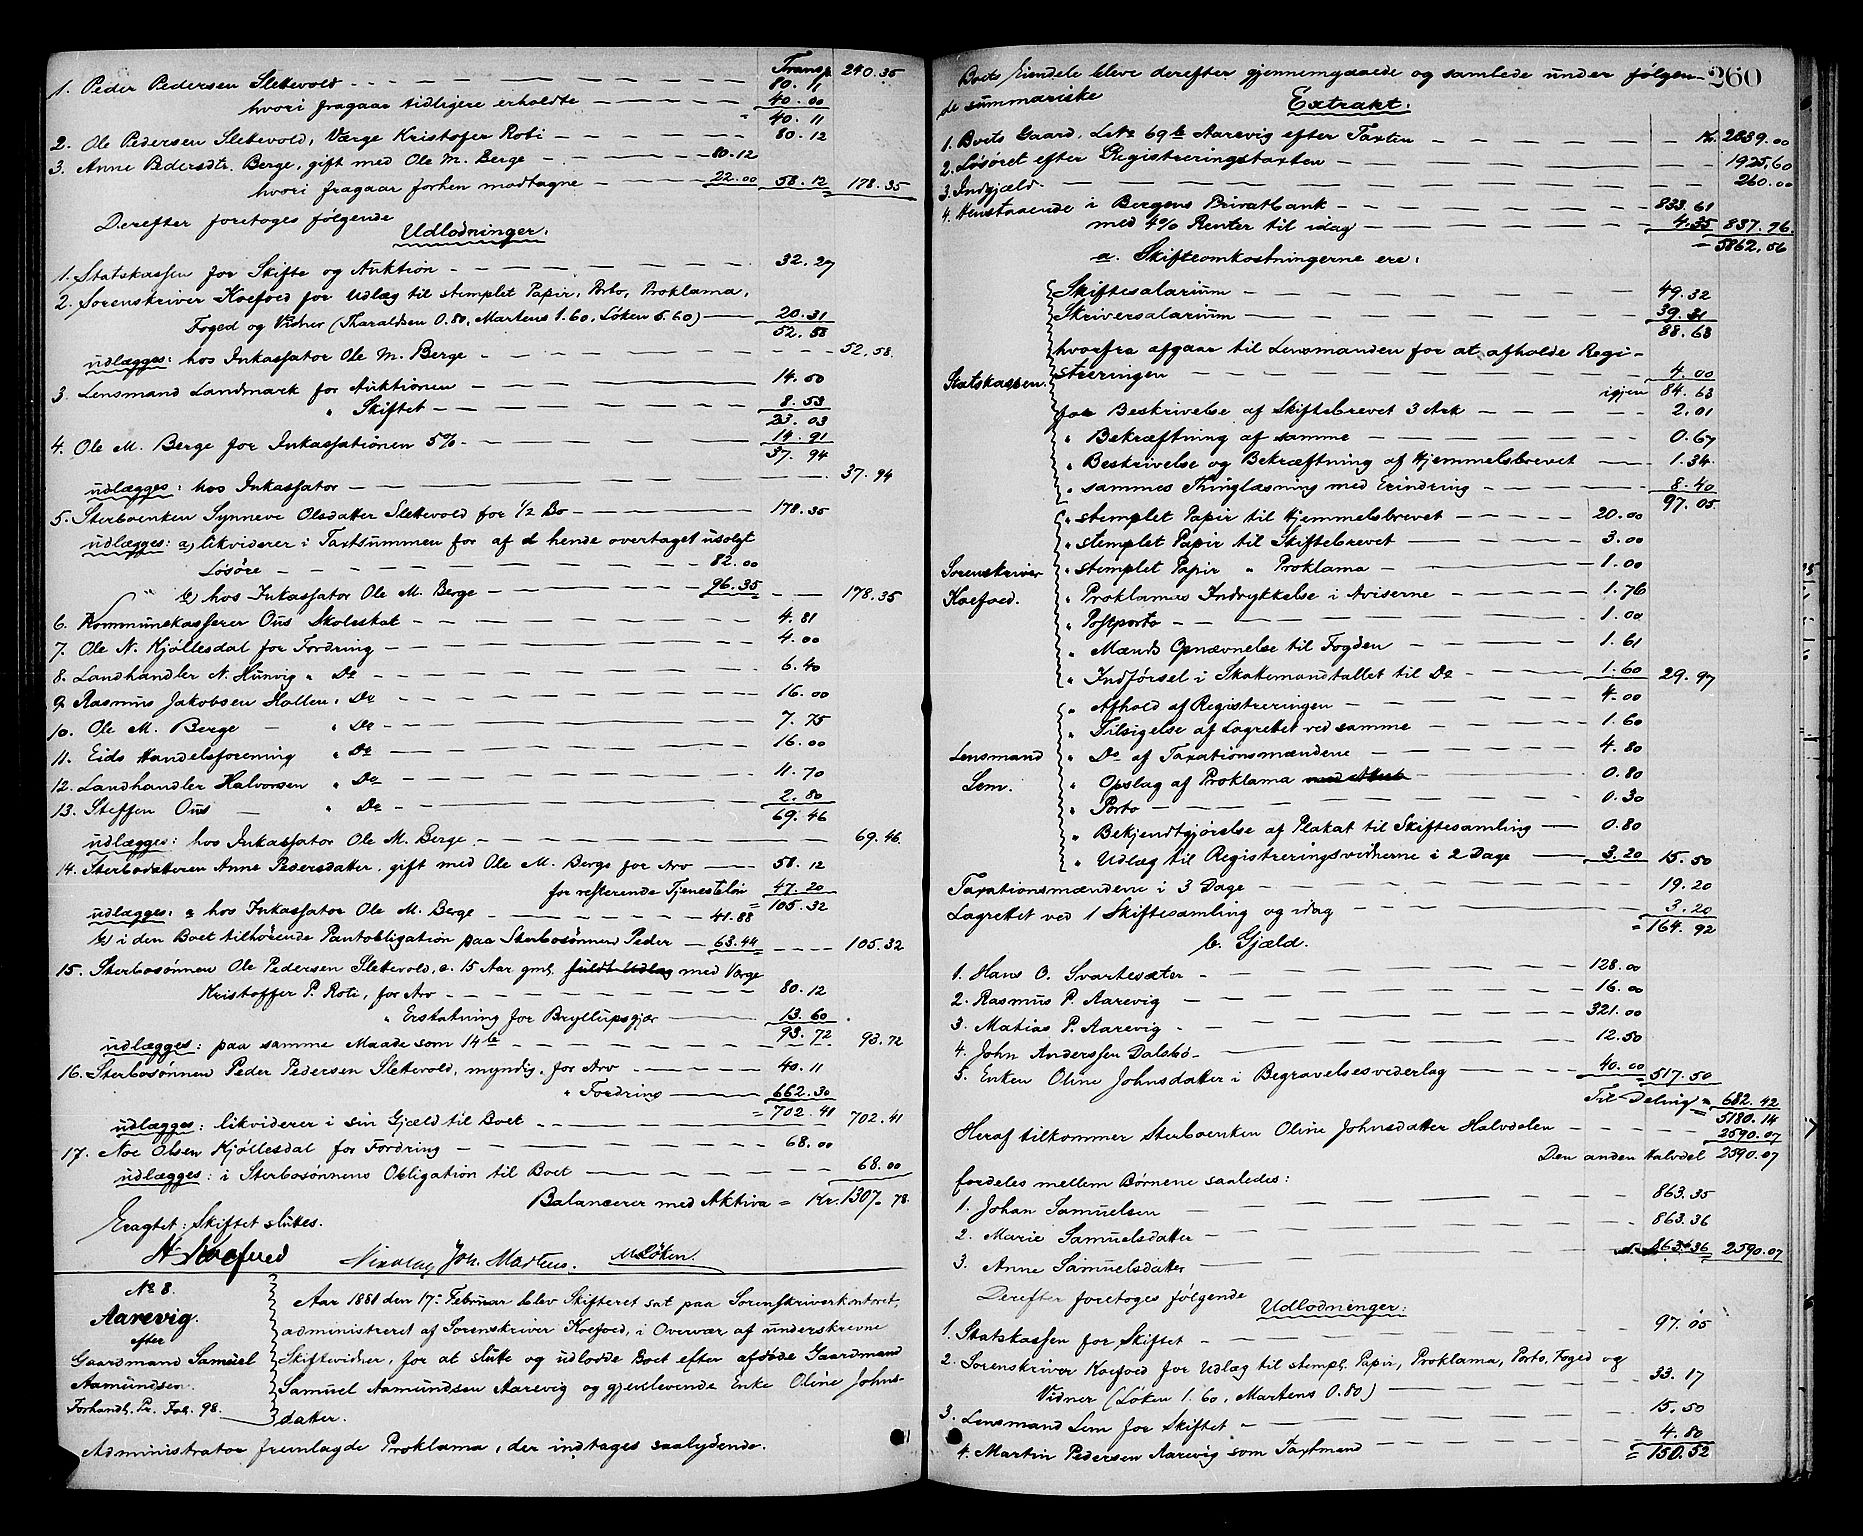 Transp. 240.35
1. Peder Pedersen Slettevold - - - 80.11
hvori fragaar tidligere erholdte - - - 40.00
" 40.11
2. Ole Pedersen Slettevold, Værge Kristofer Roti - - - 80.12
3. Anne Pedersdtr. Berge, gift med Ole M. Berge - - 80.12
hvori fragaar forhen modtagne - - - 22.00 58.12 178.35
Derefter foretoges følgende
Udlodninger:
1. Statskassen for Skifte og Auktion - - - 32.27
2. Sorenskriver Koefoed for Udlæg til stemplet Papir, Porto, Proklama,
Foged og Vidner (Haraldsen 0.80, Martens 1.60, Løken 5.60) - 20.31
52.58
udlægges: hos Inkassator Ole M. Berge - - - 52.58
3. Lensmand Landmark for Auktionen - - - 14.50
" Skiftet - - - 8.53
23.03
4. Ole M. Berge for Inkassationen 5% - - - 14.91
37.94
udlægges: hos Inkassator - - - 37.94
5. Sterboenken Synneve Olsdatter Slettevold for 1/2 Bo - - - 178.35
udlægges: a, likviderer i Taxtsummen for af hende overtaget usolgt
Løsøre - - - 82.00
b, hos Inkassator Ole M. Berge - - - 96.35 - - 178.35
6. Kommunekasserer Ous Skoleskat - - - 4.81
7. Ole N. Kjøllesdal for Fordring - - - 4.00
8. Landhandler N. Hunvig " Do - - - 6.40
9. Rasmus Jakobsen Hollen " Do - - - 16.00
10. Ole M. Berge - " Do - - - 7.75
11. Eids Handelsforening " Do - - - 16.00
12. Landhandler Halvorsen " Do - - - 11.70
13. Steffen Ous - " Do - - - 2.80
69.46
udlægges: hos Inkassator Ole M. Berge - - - 69.46
14. Sterbodatteren Anne Pedersdatter, gift med Ole M. Berge for Arv - - 58.12
for resterende Tjenesteløn 47.20
udlægges: a, hos Inkassator Ole M. Berge - - - 41.88 = 105.32
b, i den Boet tilhørende Pantobligation paa Sterbosønnen Peder - 63.44 - - - 105.32
15. Sterbosønnen Ole Pedersen Slettevold, c. 15 Aar gml. fuldt Udlæg med Værge
Kristoffer P. Roti, for Arv - - - 80.12
" Erstatning for Bryllupsgjær - - - 13.60
93.72
udlægges: paa samme Maade som 14 b - - - 93.72
16. Sterbosønnen Peder Pedersen Slettevold, myndig, for Arv - - - 40.11
" Fordring - - - 662.30
= 702.41
udlægges: likviderer i sin Gjæld til Boet - - - 702.41
17. Noe Olsen Kjøllesdal for Fordring - - - 68.00
udlægges: i Sterbosønnens Obligation til Boet - - - 68.00
Balancerer med Aktiva = Kr. 1307.78
Eragtet: Skiftet sluttes.
H. Koefoed Nikolay Joh. Martens. M Løken.
No 8.
Aarevig.
efter
Gaardmand Samuel
Aamundsen.
Forhandl. Pr. Fol. 98.
Aar 1881 den 17. Februar blev Skifteret sat paa Sorenskriverkontoret,
administreret af Sorenskriver Koefoed, i Overvær af underskrevne
Skiftevidner, for at slutte og udlodde Boet efter afdøde Gaardmand
Samuel Aamundsen Aarevig og gjenlevende Enke Oline Johns-
datter.
Administrator fremlagde Proklama, der indtages saalydende.
260
Boets Eiendele bleve derefter gjennemgaaede og samlede under følgen-
de summariske
Extrakt:
1. Boets Gaard, L.No 69 b Aarevig efter Taxten - - - Kr. 2839.00
2. Løsøret efter Registreringstaxten - - - 1925.60
3. Indgjæld - - - 260.00
4. Henstaaende i Bergens Privatbank - - - 833.61
med 4% Renter til idag - - - 4.35 837.96
= 5862.56
a. Skifteomkostningerne ere:
Statskassen.
Skiftesalarium - - - 49.32
Skriversalarium - - - 39.31
88.63
hvorfra afgaar til Lensmanden for at afholde Regi-
streringen - - - 4.00
igjen 84.63
for Beskrivelse af Skiftebrevet 3 Ark - - - 2.01
" Bekræftning af samme - - - 0.67
" Beskrivelse og Bekræftning af Hjemmelsbrevet - - 1.34
" sammes Thinglæsning med Erindring - - - 8.40
97.05
Sorenskriver
Koefoed.
" stemplet Papir til Hjemmelsbrevet - - - 20.00
" stemplet Papir til Skiftebrevet - - - 3.00
" stemplet Papir " Proklama - - - 1.00
" Proklamas Indrykkelse i Aviserne - - - 1.76
" Postporto - - - 1.00
" Mænds Opnævnelse til Fogden - - - 1.61
" Indførsel i Skattemandtallet til Do - - - 1.60 29.97
Lensmand
Lem.
" Afhold af Registreringen - - - 4.00
" Tilsigelse af Lagrettet ved samme - - - 1.60
" Do af Taxationsmændene - - - 4.80
" Opslag af Proklama - - - 0.80
" Porto - - - 0.30
" Bekjendtgjørelse af Plakat til Skiftesamling - - 0.80
" Udlæg til Registreringsvidnerne i 2 Dage - - 3.20 15.50
Taxationsmændene i 3 Dage - - - 19.20
Lagrettet ved 1 Skiftesamling og idag - - - 3.20
= 164.92
b. Gjæld.
1. Hans O. Svartesæter - - - 128.00
2. Rasmus P. Aarevig - - - 16.00
3. Matias P. Aarevig - - - 321.00
4. John Anderssen Dalsbø - - - 12.50
5. Enken Oline Johnsdatter i Begravelsesvederlag - - - 40.00 = 517.50
= 682.42
Til Deling = 5180.14
Heraf tilkommer Sterboenken Oline Johnsdatter Halvdelen - - - 2590.07
Den anden Halvdel 2590.07
fordeles mellem Børnene saaledes:
1. Johan Samuelsen - - - 863.35
2. Marie Samuelsdatter - - - 863.36
3. Anne Samuelsdatter - - - 863.36 2590.07
Derefter foretoges følgende
Udlodninger:
1. Statskassen for Skiftet - - - 97.05
2. Sorenskriver Koefoed for Udlæg til stempl. Papir, Proklama, Porto, Foged og
Vidner (Løken 1.60, Martens 0.80) - - - 33.17
3. Lensmand Lem for Skiftet - - - 15.50
4. Martin Pedersen Aarevig som Taxtmand - - - 4.80
= 150.52